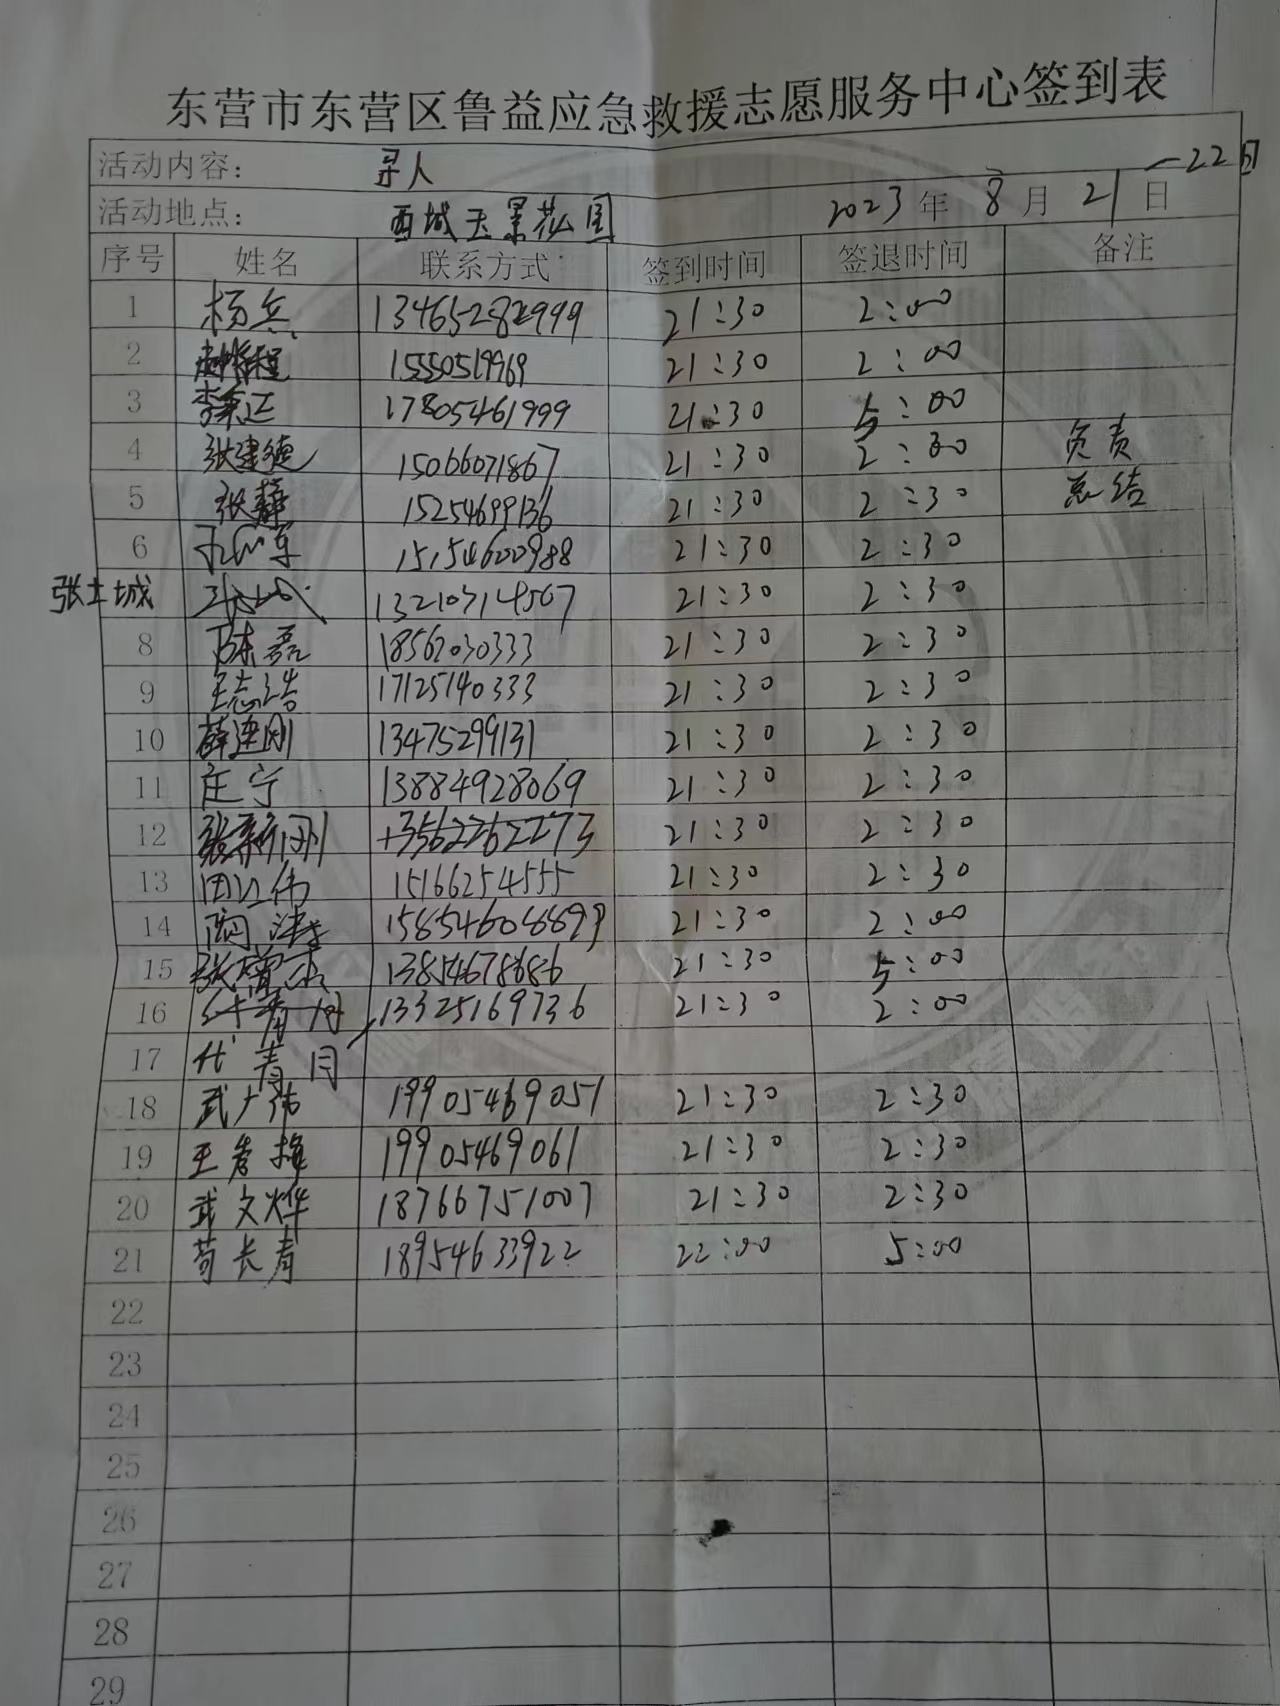 东营市东营区鲁益应急救援志愿服务中心签到表
活动内容: 寻人
活动地点: 西城玉景花园 2023年 8月 21日 —22日
序号 姓名 联系方式 签到时间 签退时间 备注
1 杨兵 13465282999 21:30 2:00
2 15550519969 21:30 2:00
3 17805461999 21:30 5:00
4 张建德 15066071867 21:30 2:00 负责
5 张静 15254699136 21:30 2:30 总结
6 15154600988 21:30 2:30
张士城 13210714567 21:30 2:30
8 陈磊 18562030333 21:30 2:30
9 王志浩 17125140333 21:30 2:30
10 薛连刚 13475299131 21:30 2:30
11 庄宁 13884928069 21:30 2:30
12 张新刚 13562262273 21:30 2:30
13 15166254555 21:30 2:30
14 15854608899 21:30 2:00
15 13854678686 21:30 5:00
16 13325169736 21:30 2:00
17 代青月
18 武广伟 19905469051 21:30 2:30
19 王春梅 19905469061 21:30 2:30
20 武文烨 18766751007 21:30 2:30
21 苟长青 18954633922 22:00 5:00
22
23
24
25
26
27
28
29